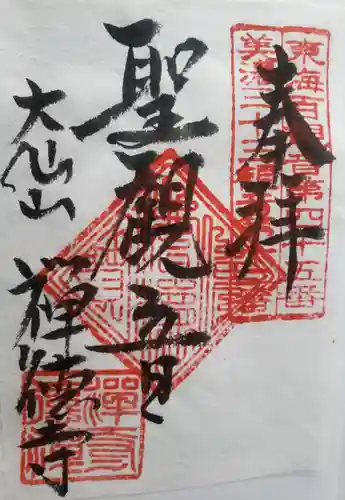 奉拝
東海百観音第四十五番
美濃三十三観音第十二番
聖観音
大仙山
禅徳寺